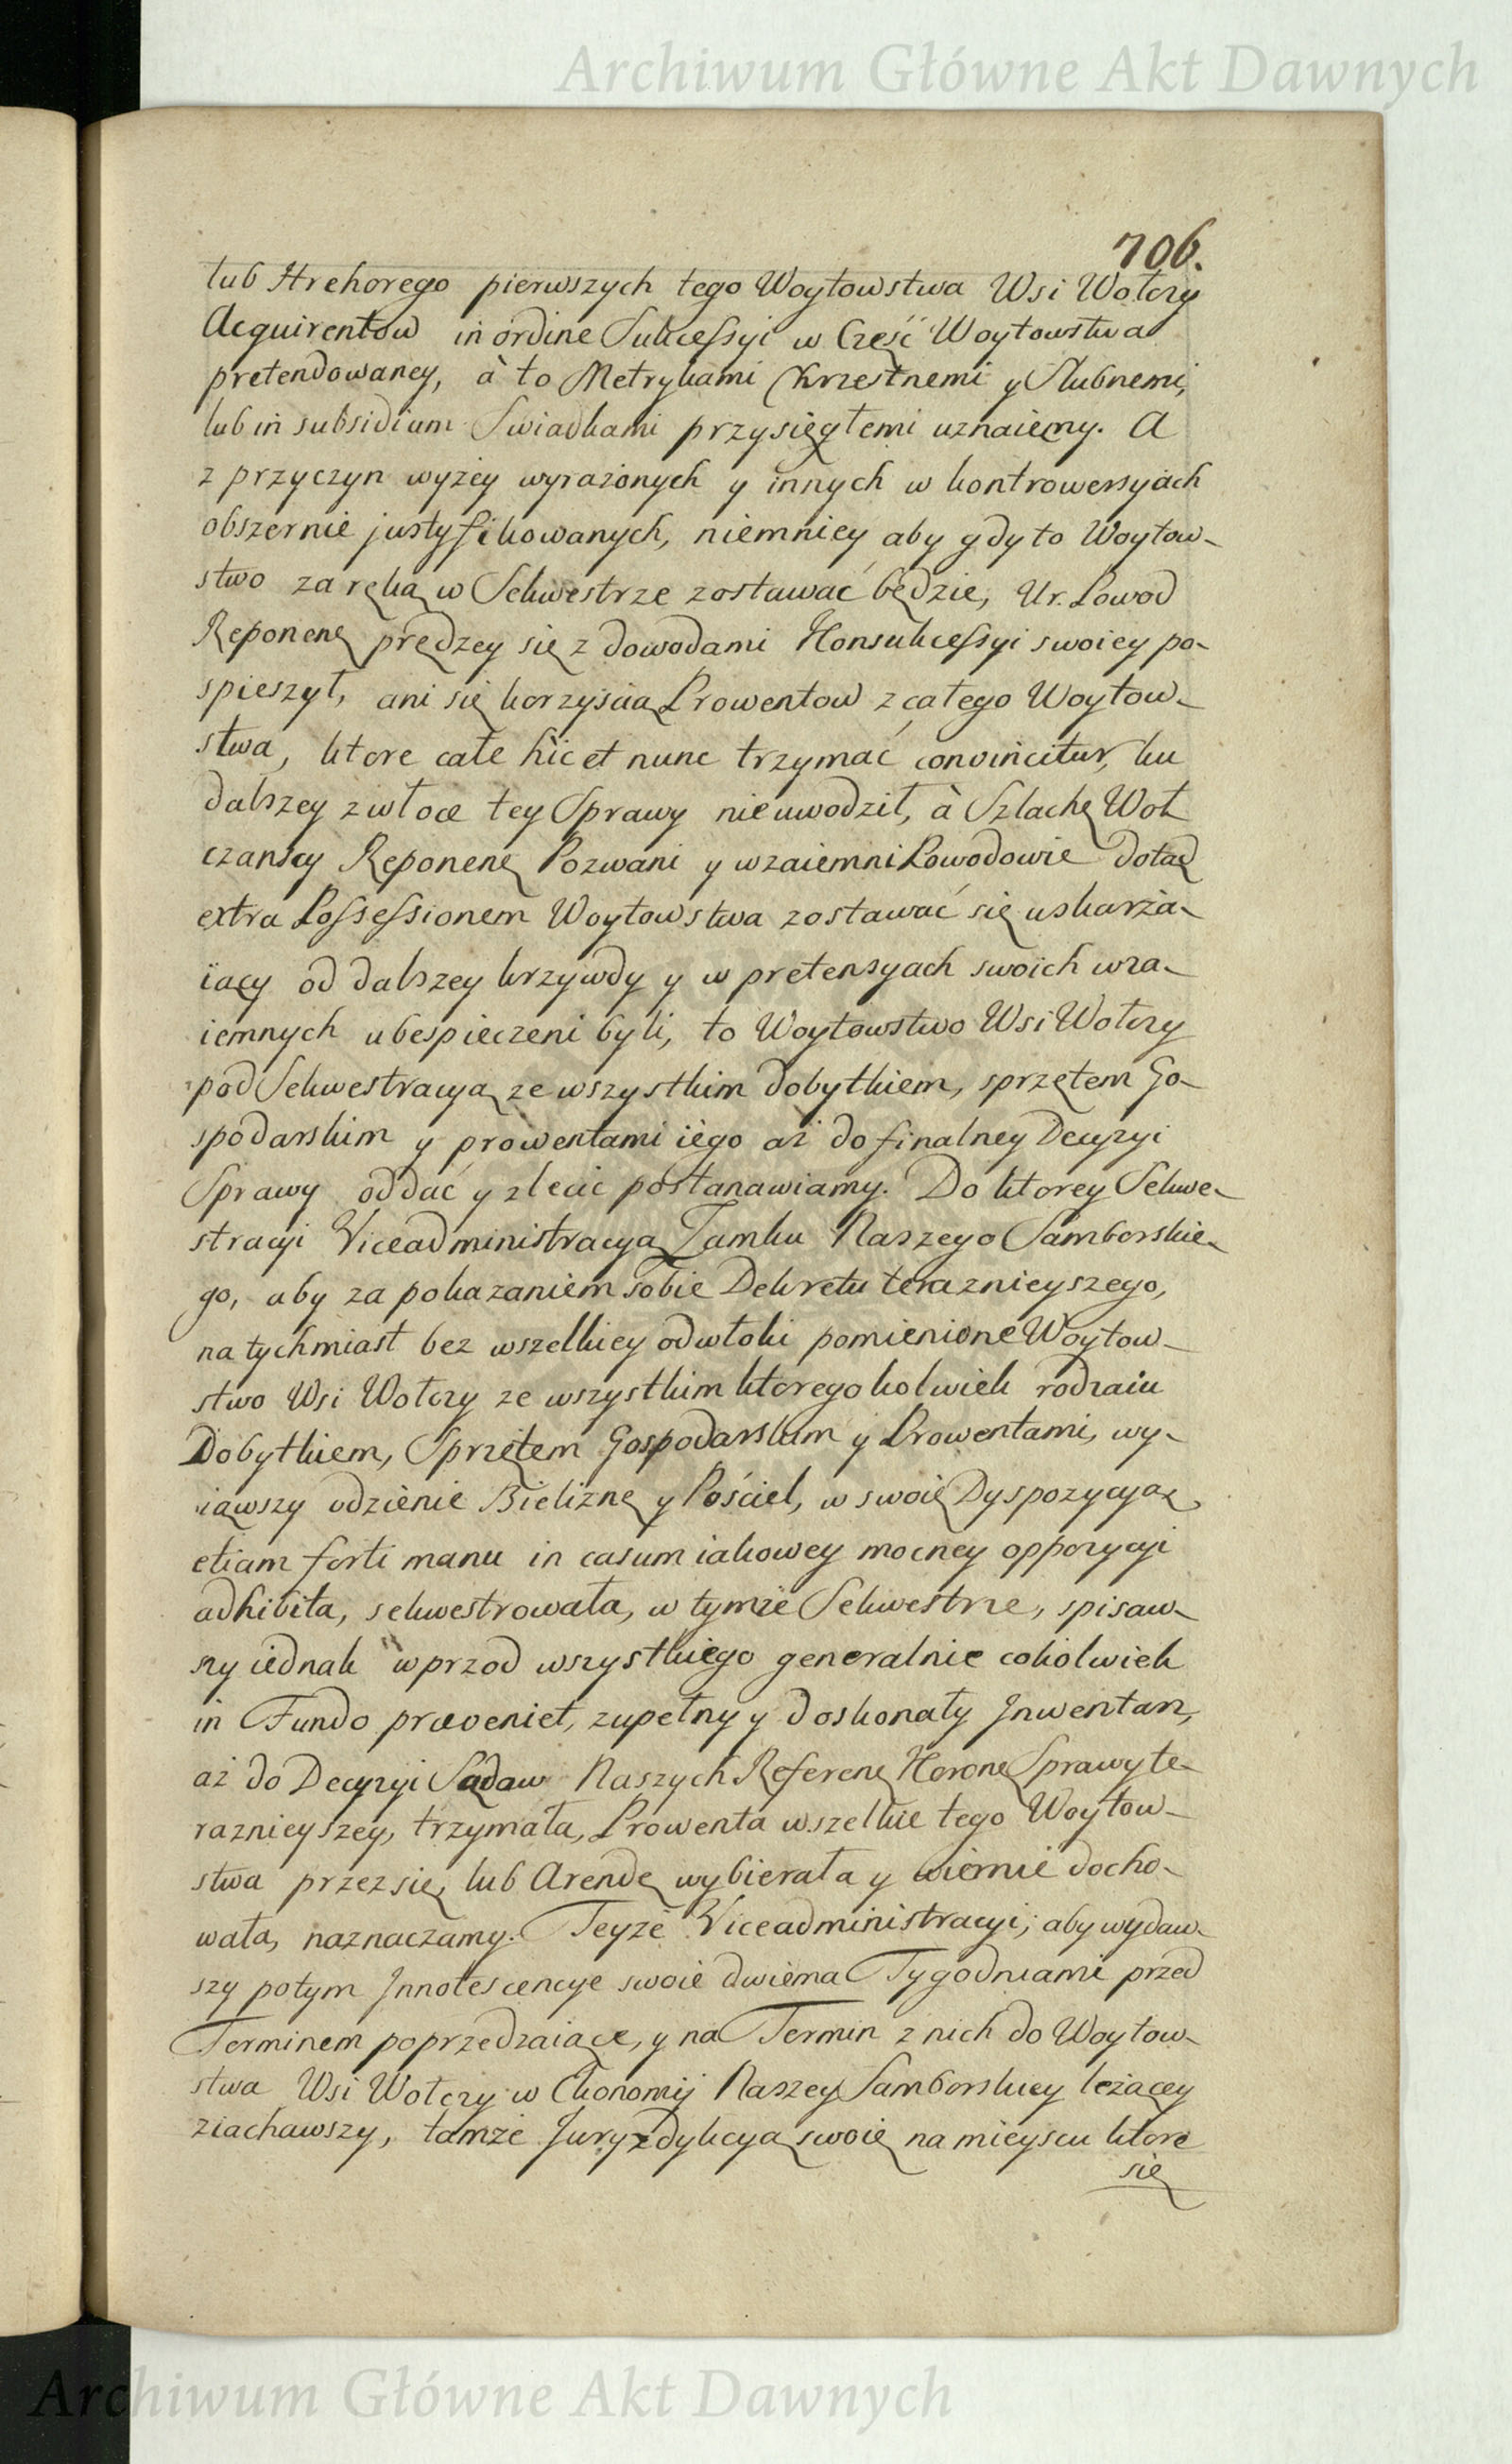 Archiwum Główne Akt Dawnych
706.
lub Hrehorego pierwszych tego Woytowstwa Wsi Wołczy
Acquirentow in ordine Sukcessyi w Częsć Woytowstwa
pretendowaney, à to Metrykami Chrzestnemi y Slubnemi,
lub in subsidium Swiadkami przysięgłemi uznaiemy. A
z przyczyn wyżey wyrażonych y innych w kontrowersyach
obszernie justyfikowanych, niemniey aby gdy to Woytow-
stwo za ręką w Sekwestrze zostawać będzie, Ur. Powod
Reponenę prędzey się z dowodami Konsukcessyi swoiey po-
spieszył, ani się korzyscią Prowentow z całego Woytow-
stwa, ktore całe hic et nunc trzymać convincitur, ku
dalszey zwłoce tey Sprawy nie uwodził, à Szlachę Woł
czanscy Reponenę Pozwani y wzaiemni Powodowie dotąd
extra Possessionem Woytowstwa zostawać się uskarża-
iący od dalszey krzywdy y w pretensyach swoich wza-
iemnych ubespieczeni byli, to Woytowstwo Wsi Wołczy
pod Sekwestracyą ze wszystkim dobytkiem, sprzętem Go-
spodarskim y prowentami iego aż do finalney Decyzyi
Sprawy oddać y zlecic postanawiamy. Do ktorey Sekwe-
stracyi Viceadministracyą Zamku Naszego Samborskie-
go, aby za pokazaniem sobie Dekretu teraznieyszego,
natychmiast bez wszelkiey odwłoki pomienione Woytow-
stwo Wsi Wołczy ze wszystkim ktoregokolwiek rodzaiu
Dobytkiem, Sprzętem Gospodarskim y Prowentami, wy-
iąwszy odzienie Bieliznę y Pościel, w swoię Dyspozycyą
etiam forti manu in casum iakowey mocney oppozycyi
adhibita, sekwestrowała, w tymże Sekwestrze, spisaw-
szy iednak wprzod wszystkiego generalnie cokolwiek
in Fundo præveniet, zupełny y doskonały Jnwentarz,
aż do Decyzyi Sądow Naszych Referenę Koronę Sprawy te-
raznieyszey, trzymała, Prowenta wszelkie tego Woytow-
stwa przez się, lub Arendę wybierała y wiernie docho-
wała, naznaczamy. Teyże Viceadministracyi, aby wydaw-
szy potym Jnnotescencye swoie dwiema Tygodniami przed
Terminem poprzedzaiące, y na Termin z nich do Woytow-
stwa Wsi Wołczy w Ekonomij Naszey Samborskiey leżącey
ziachawszy, tamże Juryzdykcyą swoię na mieyscu ktore
się
Archiwum Główne Akt Dawnych